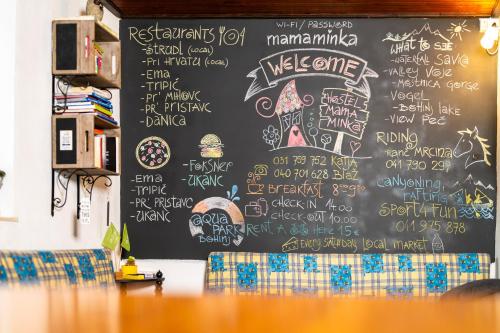 RESTAURANTS
-ŠTRUDL (LOCAL)
-PRI HRVATU (LOCAL)
-EMA
-TRIPIČ
-PR' MIHOVC
-PR' PRISTAVC
-DANICA
-EMA
-TRIPIČ
-PR' PRISTAVC
-UKANC
-FOKSNER
-UKANC
AQUA
PARK
BOHINJ
WI-FI / PASSWORD
mamaminka
WELCOME
HOSTEL
MAMA
MINKA
031 759 752 KATJA
040 701 628 BLAŽ
BREAKFAST 8:00
CHECK-IN 14.00
CHECK-OUT 10.00
RENT A BIKE HERE 15€
EVERY SATURDAY LOCAL MARKET
WHAT TO SEE
-WATERFALL SAVICA
-VALLEY VOJE
-MOSTNICA GORGE
-VOGEL
-BOHINJ LAKE
-VIEW PEČ
RIDING
RANČ MRCINA
041 790 297
CANYONING,
RAFTING
SPORT 4 FUN